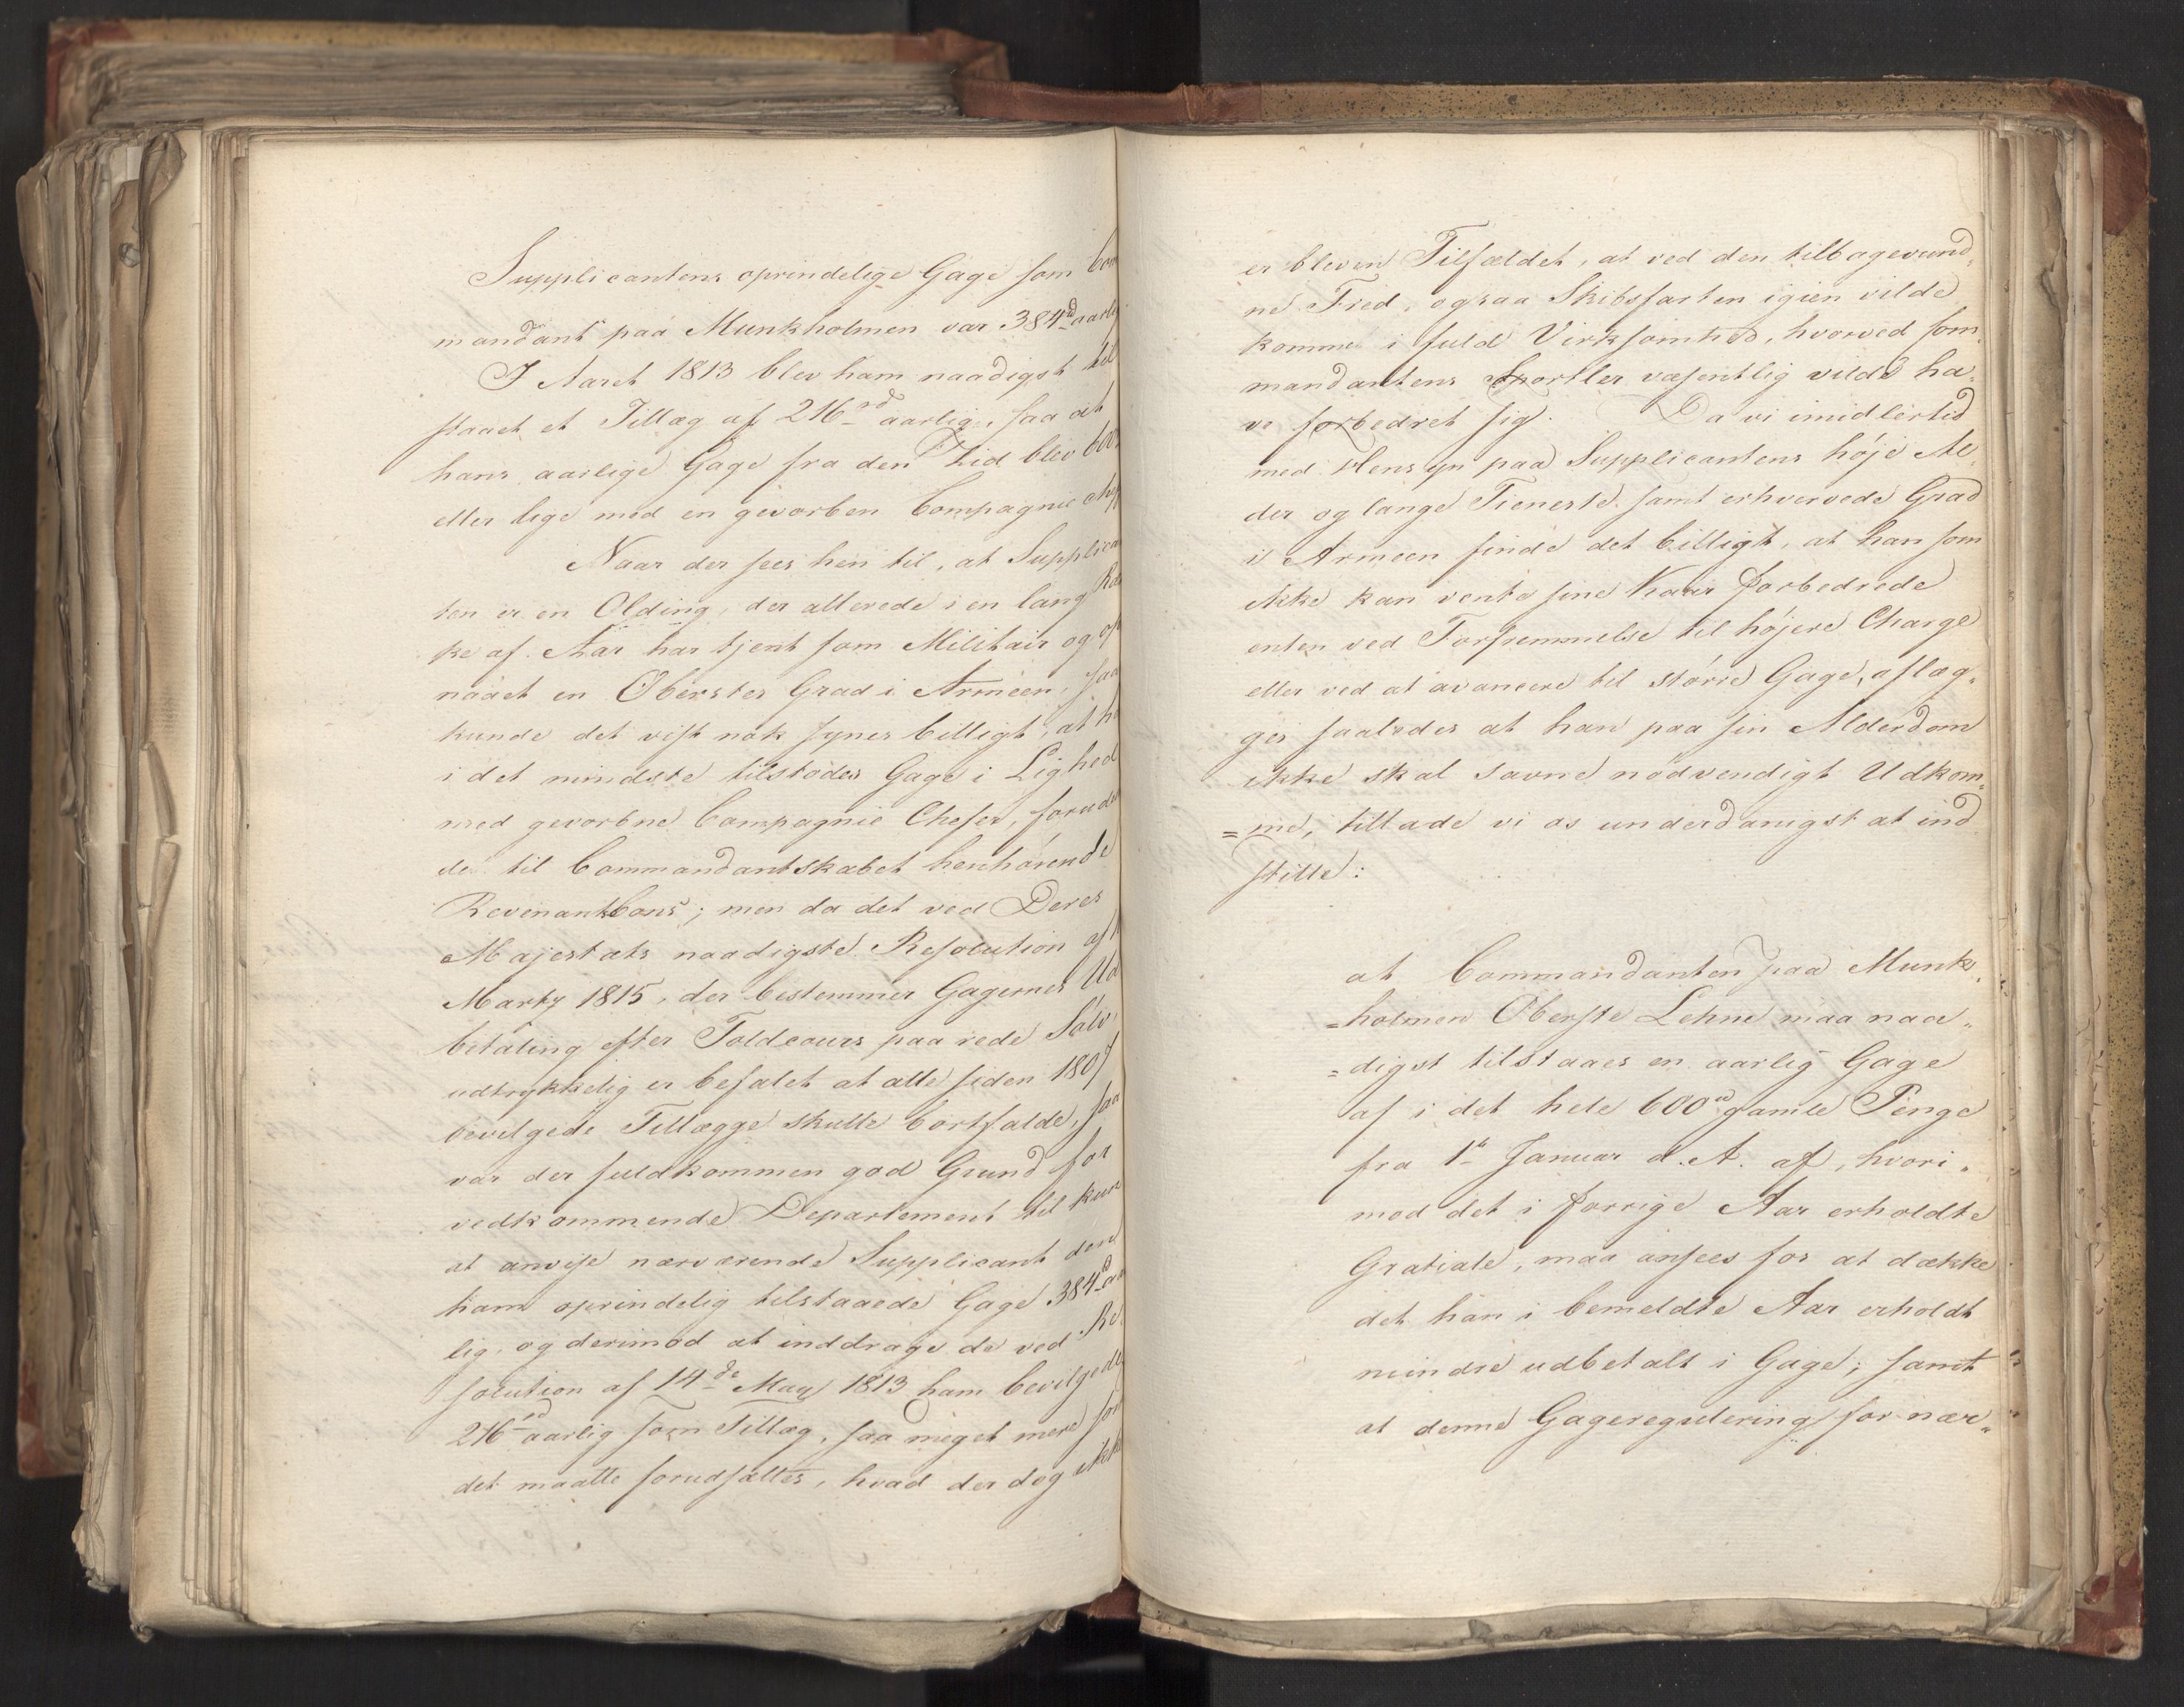 Supplicantens oprindelige Gage som Com
mandant paa Munkholmen var 384rd aarli
I Aaret 1813 blev ham naadigst til
staaet et Tillæg af 216rd aarlig, saa at
hans aarlige Gage fra den Tid blev 600
eller lige med en gevorben Compagnie Chef
Naar der sees hen til, at Supplica
ten er en Olding, der allerede i en lang Ræ
ke af Aar har tjent som Militair og op
naaet en Oberstes Grad i Armeen, saa
kunde det vist nok synes billigt, at h
i det mindste tilstodes Gage i Lighed
med gevorbne Compagnie Chefer, foruden
de til Commandantskabet henhørende
Revenant Cons; men da det ved Deres
Majestæts naadigste Resolution af
Marty 1815, der bestemmer Gagernes Ud
betaling efter Toldcours paa rede Sølv,
udtrykkelig er befalet at alle siden 1807
bevilgede Tillægge skulle bortfalde, saa
var der fuldkommen god Grund for
vedkommende Departement til kun
at anvise nærværende Supplicant den
ham oprindelig tilstaaede Gage 384rd aar
lig, og derimod at inddrage de ved Re,
solution af 14de May 1813 ham bevilgede
216rd aarlig som Tillæg, saa meget mere som
det maatte forudsættes, hvad der dog ikke
er bleven Tilfældet, at ved den tilbagevund,
ne Fred, ogsaa Skibsfarten igien vilde
komme i fuld Virksomhed, hvorved Com,
mandantens Sportler væsentlig vilde ha,
ve forbedret sig. Da vi imidlertid
med Hensyn paa Supplicantens høje Al,
der og lange Tieneste samt erhvervede Grad
i Armeen finde det billigt, at han som
ikke kan vente sine Kaar forbedrede
enten ved Forfremmelse til højere Charge
eller ved at avancere til større Gage, aflæg„
ges saaledes at han paa sin Alderdom
ikke skal savne nødvendigt Udkom„
=me, tillade vi os underdanigst at ind
stille:
at Commandanten paa Munk„
=holmen Oberste Lehne maa naa„
=digst tilstaaes en aarlig Gage
af i det hele 600rd gamle Penge
fra 1ste Januar d. A. af, hvori„
mod det i forrige Aar erholdte
Gratiale, maa ansees for at dække
det han i bemeldte Aar erholdt
mindre udbetalt i Gage; samt
at denne Gageregulering for nær„